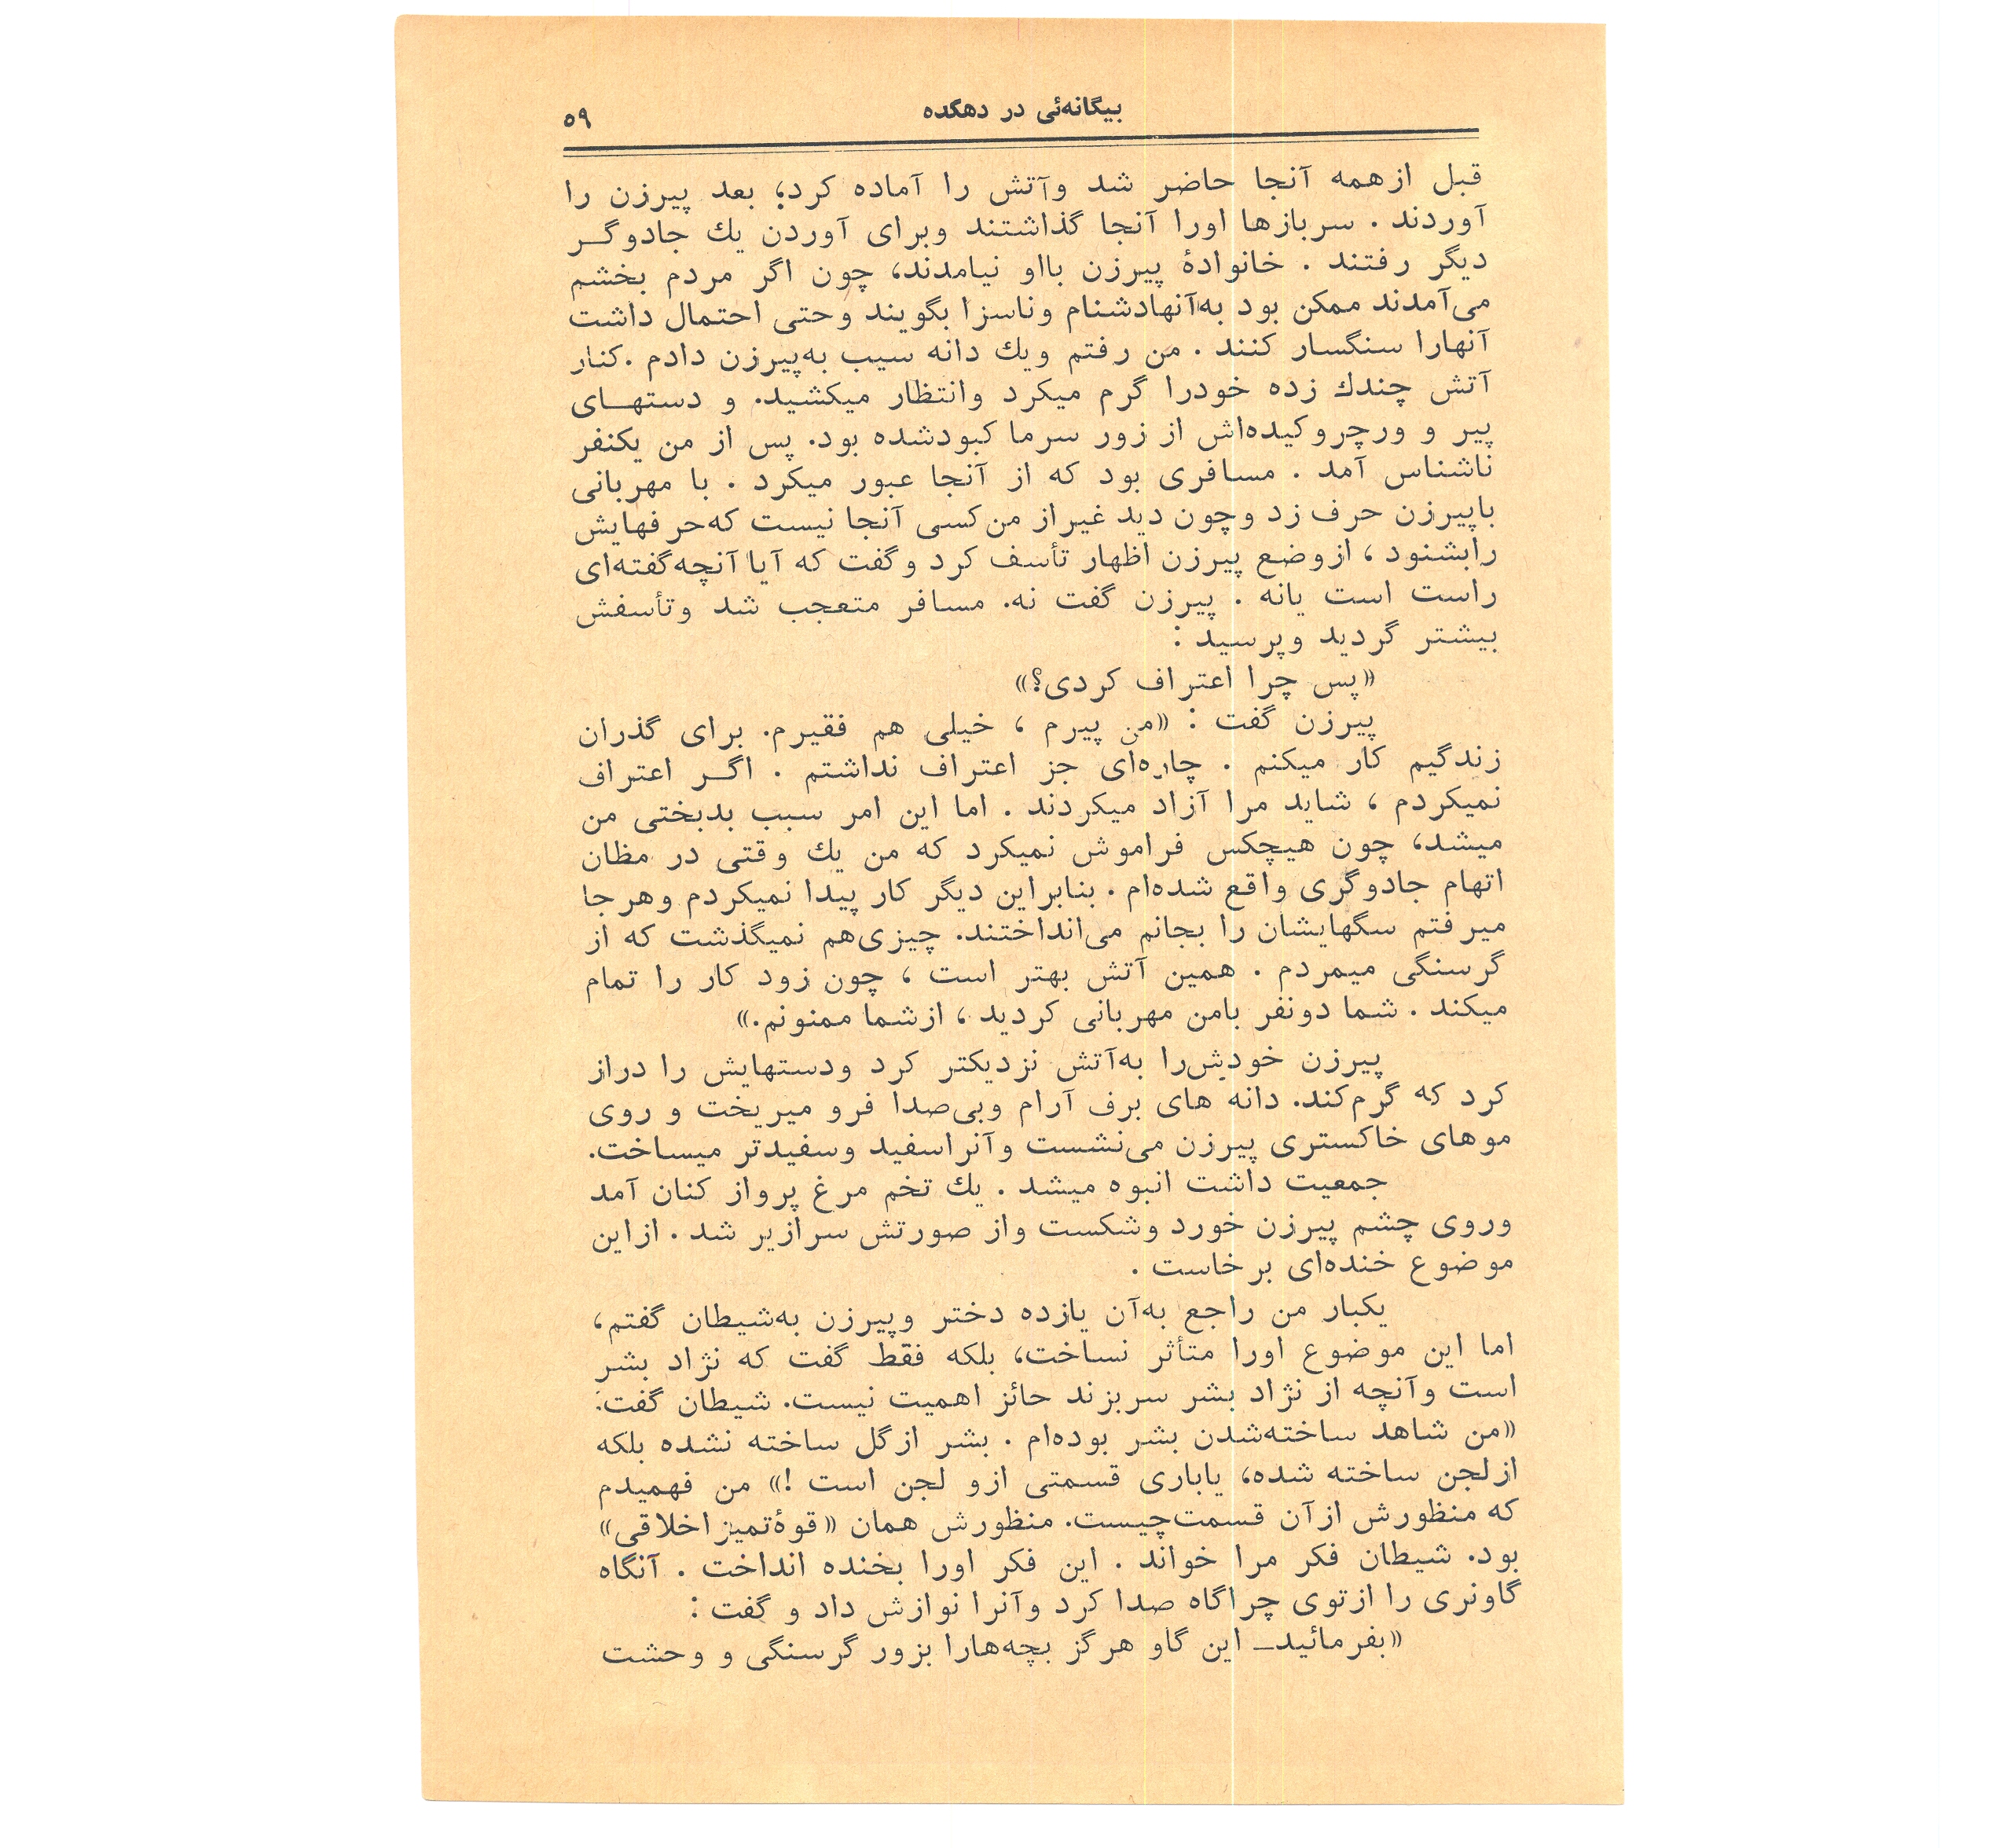 بیگانه‌ئی در دهکده ۵۹
قبل ازهمه آنجا حاضر شد وآتش را آماده کرد؛ بعد پیرزن را
آوردند . سربازها اورا آنجا گذاشتند وبرای آوردن یك جادوگــر
دیگر رفتند . خانوادهٔ پیرزن بااو نیامدند، چون اگر مردم بخشم
می‌آمدند ممکن بود به‌آنهادشنام وناسزا بگویند وحتی احتمال داشت
آنهارا سنگسار کنند . من رفتم ویك دانه سیب به‌پیرزن دادم .کنار
آتش چندك زده خودرا گرم میکرد وانتظار میکشید. و دستهــای
پیر و ورچروکیده‌اش از زور سرما کبودشده بود. پس از من یکنفر
ناشناس آمد . مسافری بود که از آنجا عبور میکرد . با مهربانی
باپیرزن حرف زد وچون دید غیراز من‌کسی آنجا نیست که‌حرفهایش
رابشنود ، ازوضع پیرزن اظهار تأسف کرد وگفت که آیا آنچه‌گفته‌ای
راست است یانه . پیرزن گفت نه. مسافر متعجب شد وتأسفش
بیشتر گردید وپرسید :
«پس چرا اعتراف کردی؟»
پیرزن گفت : «من پیرم ، خیلی هم فقیرم. برای گذران
زندگیم کار میکنم . چاره‌ای جز اعتراف نداشتم . اگــر اعتراف
نمیکردم ، شاید مرا آزاد میکردند . اما این امر سبب بدبختی من
میشد، چون هیچکس فراموش نمیکرد که من یك وقتی در مظان
اتهام جادوگری واقع شده‌ام . بنابراین دیگر کار پیدا نمیکردم وهرجا
میرفتم سگهایشان را بجانم می‌انداختند. چیزی‌هم نمیگذشت که از
گرسنگی میمردم . همین آتش بهتر است ، چون زود کار را تمام
میکند . شما دونفر بامن مهربانی کردید ، ازشما ممنونم.»
پیرزن خودش‌را به‌آتش نزدیکتر کرد ودستهایش را دراز
کرد که گرم‌کند. دانه های برف آرام وبی‌صدا فرو میریخت و روی
موهای خاکستری پیرزن می‌نشست وآنراسفید وسفیدتر میساخت.
جمعیت داشت انبوه میشد . یك تخم مرغ پرواز کنان آمد
وروی چشم پیرزن خورد وشکست واز صورتش سرازیر شد . ازاین
موضوع خنده‌ای برخاست .
یکبار من راجع به‌آن یازده دختر وپیرزن به‌شیطان گفتم،
اما این موضوع اورا متأثر نساخت، بلکه فقط گفت که نژاد بشر
است وآنچه از نژاد بشر سربزند حائز اهمیت نیست. شیطان گفت:
«من شاهد ساخته‌شدن بشر بوده‌ام . بشر ازگل ساخته نشده بلکه
ازلجن ساخته شده، یاباری قسمتی ازو لجن است !» من فهمیدم
که منظورش ازآن قسمت‌چیست. منظورش همان «قوهٔ‌تمیزاخلاقی»
بود. شیطان فکر مرا خواند . این فکر اورا بخنده انداخت . آنگاه
گاونری را ازتوی چراگاه صدا کرد وآنرا نوازش داد و گفت :
«بفرمائیدــ این گاو هرگز بچه‌هارا بزور گرسنگی و وحشت